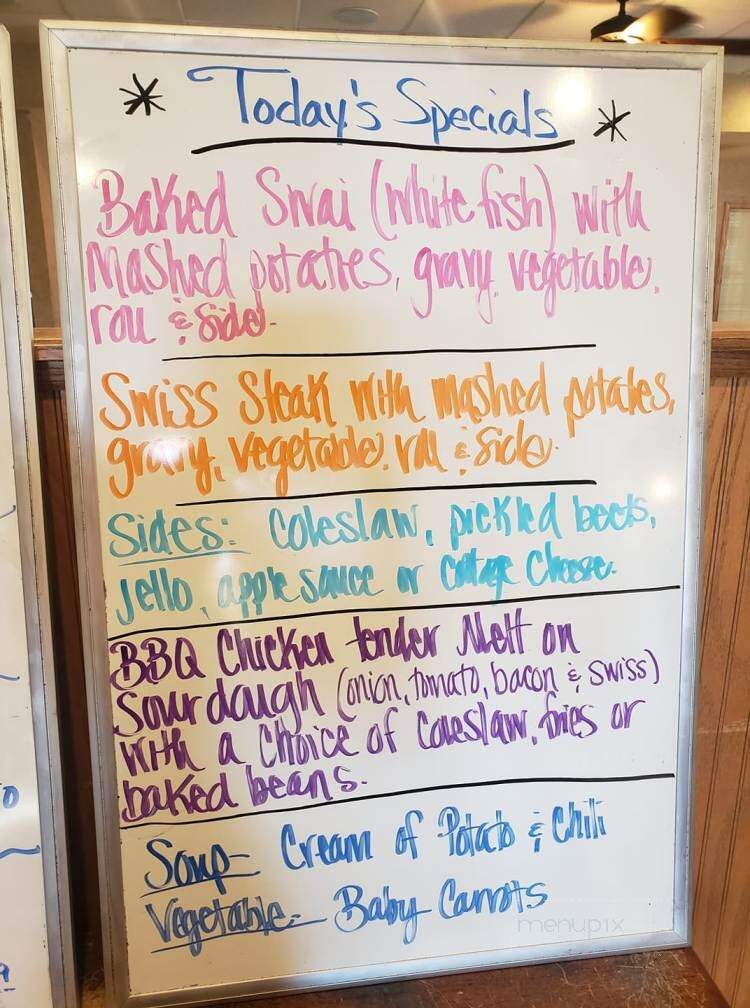 * Today's Specials *
Baked Swai (white fish) with
Mashed potatoes, gravy, vegetable,
roll & Side.
Swiss Steak with mashed potatoes,
gravy, vegetable, roll & Side.
Sides: Coleslaw, pickled beets,
Jello, apple sauce or Cottage Cheese.
BBQ Chicken tender Melt on
Sourdough (onion, tomato, bacon & swiss)
with a Choice of Coleslaw, fries or
baked beans.
Soup- Cream of Potato & Chili
Vegetable- Baby Carrots
menupix